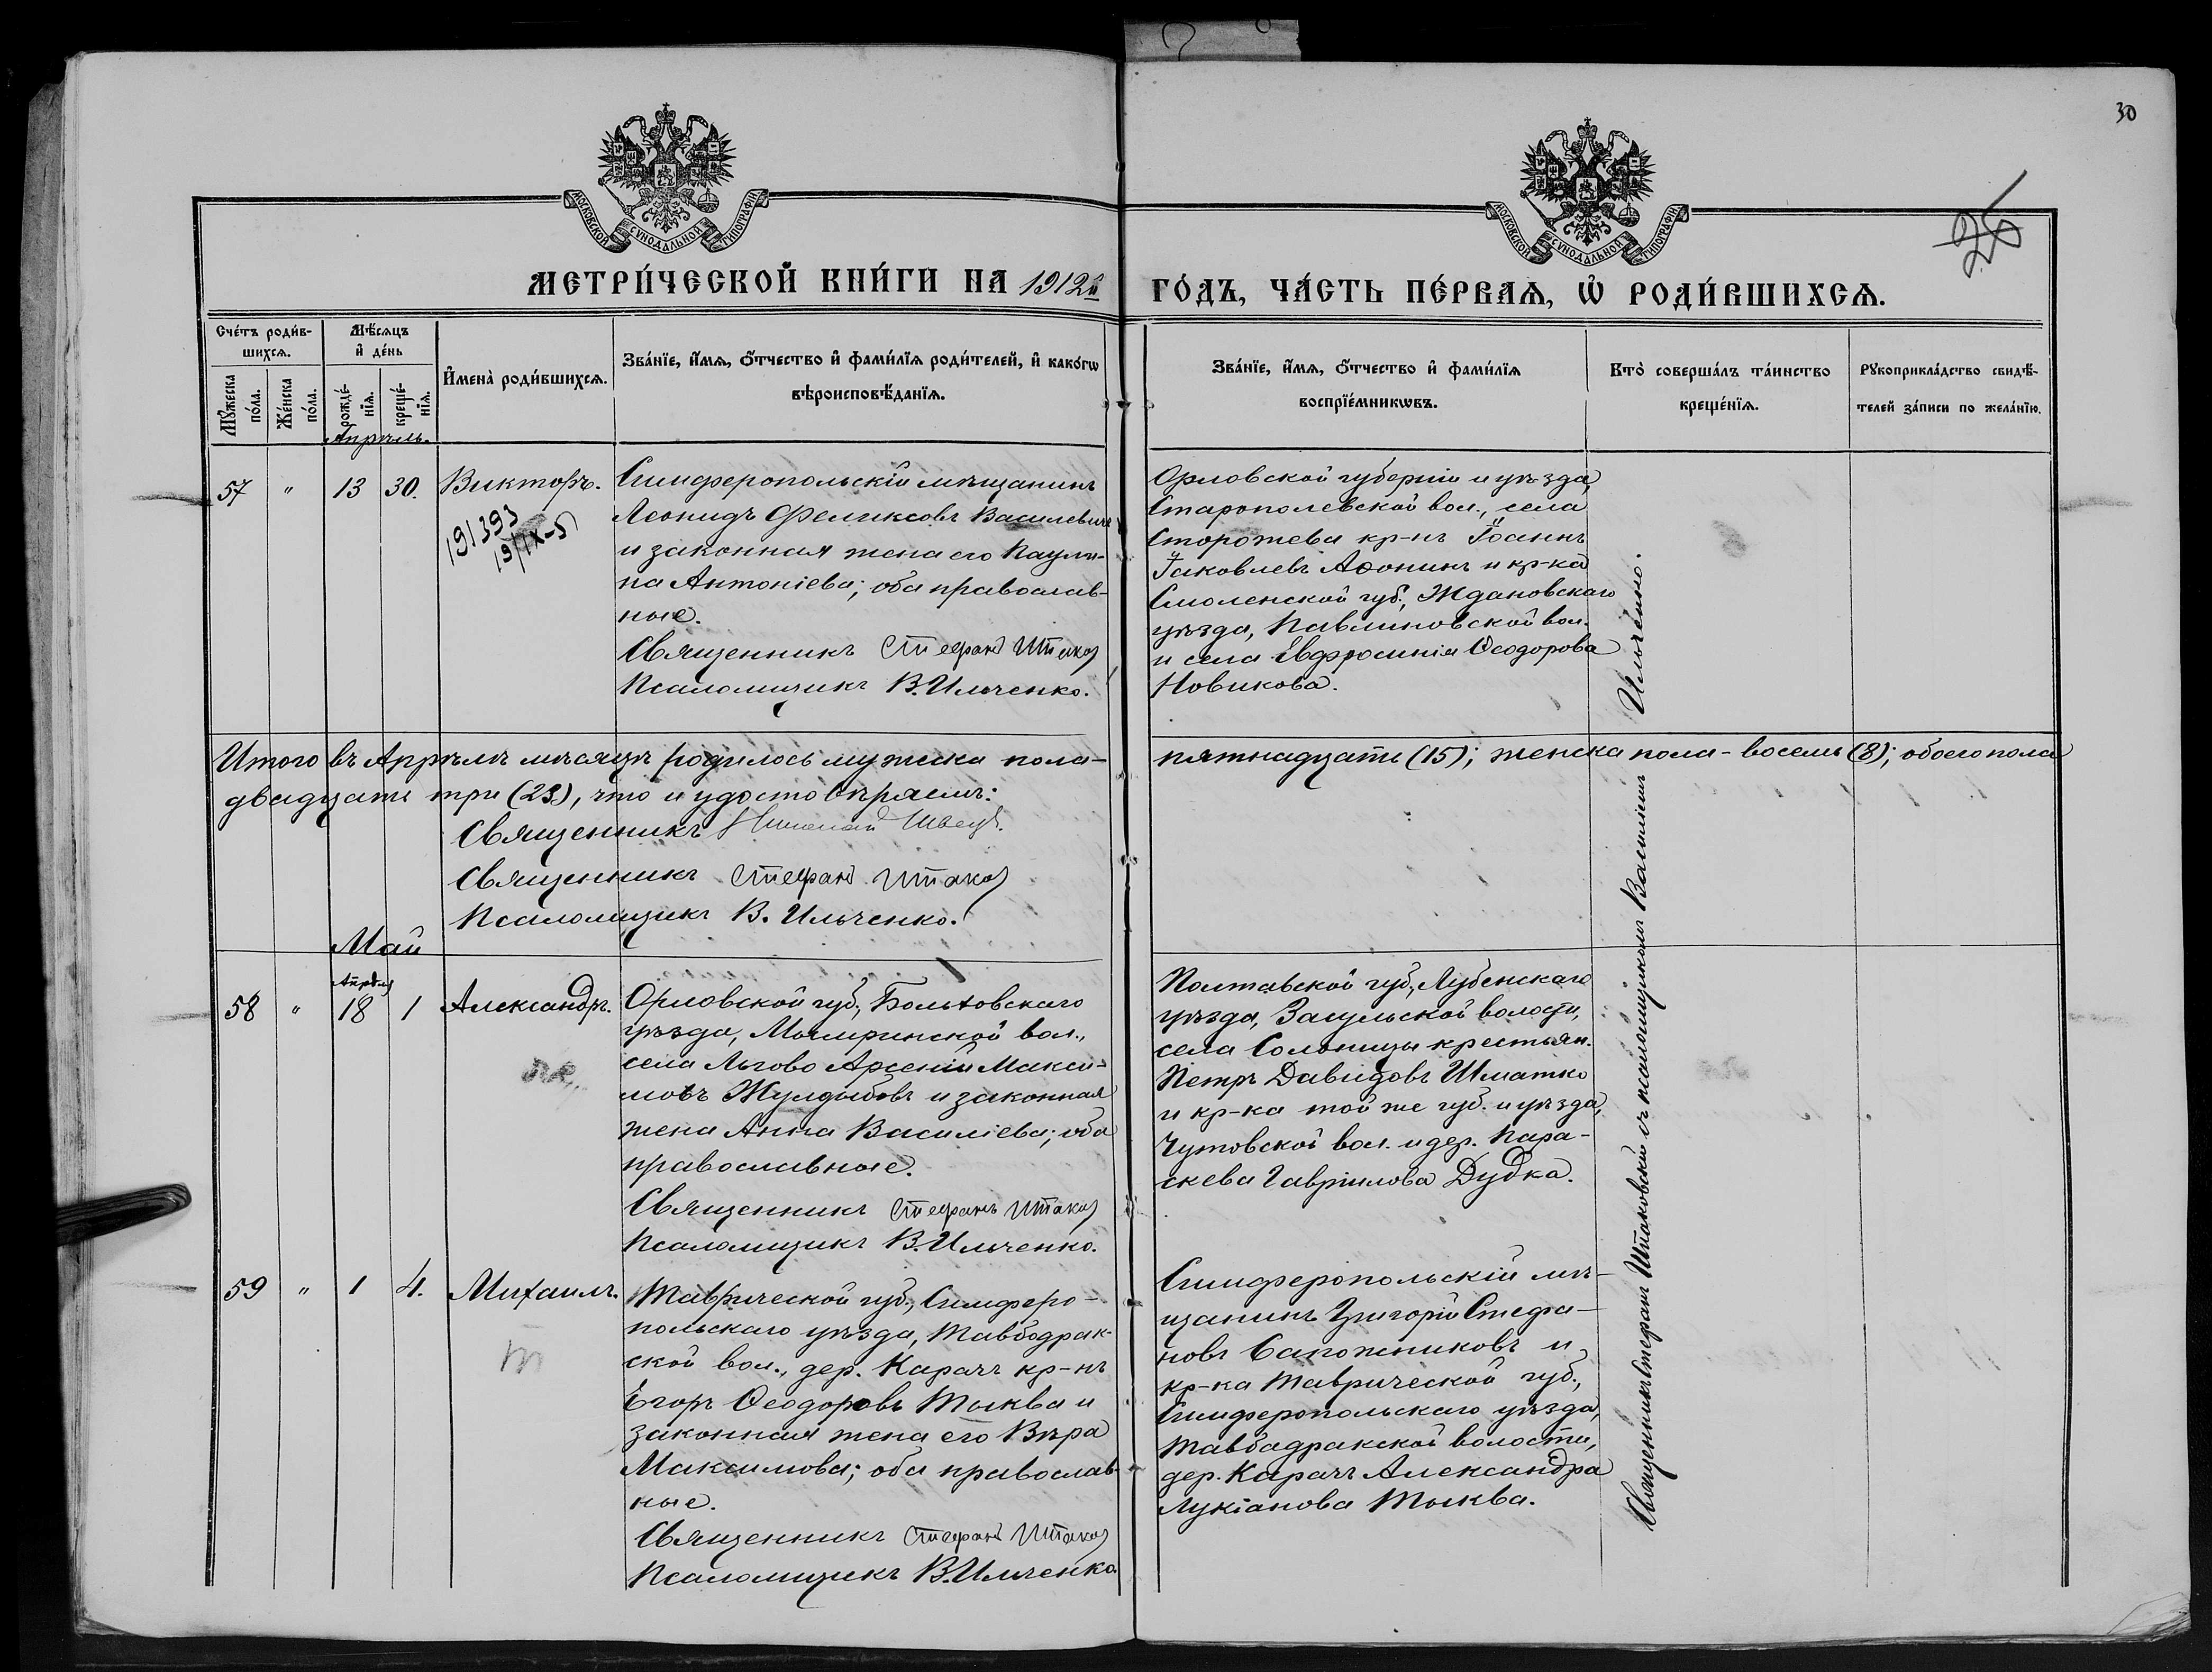 30
25
МОСКОВСКОЙ СѴНОДАЛЬНОЙ ТИПОГРАФІИ
МОСКОВСКОЙ СѴНОДАЛЬНОЙ ТИПОГРАФІИ
МЕТРИ́ЧЕСКОЙ КНИ́ГИ НА 1912й ГО́ДЪ, ЧА́СТЬ ПЕ́РВАѦ, Ѡ РОДИ́ВШИХСѦ.
Сче́тъ роди́в-
шихсѧ.
Мꙋ́жеска
по́ла.
Же́нска
по́ла.
Мѣ́сѧцъ
и де́нь
рожде́-
нїѧ.
креще́-
нїѧ.
Имена̀ роди́вшихсѧ.
Зва́нїе, и́мѧ, о́тчество и фами́лїѧ роди́телей, и како́гѡ
вѣроисповѣ́данїѧ.
Зва́нїе, и́мѧ, о́тчество и фами́лїѧ
воспрїе́мникѡвъ.
Кто̀ соверша́лъ та́инство
креще́нїѧ.
Рꙋкоприкла́дство свидѣ́-
телей за́писи по жела́нїю.
Апрѣль.
57 " 13 30. Викторъ.
191393
19/IX-51
Симферопольскій мѣщанинъ
Леонидъ Феликсовъ Василевичъ
и законная жена его Паули-
на Антоніева; оба православ-
ные.
Священникъ Стефанъ
Псаломщикъ В. Ильченко.
Орловской губерніи и уѣзда,
Старополевской вол., села
Сторожева кр-нъ Іоаннъ
Іаковлевъ Афонинъ и кр-ка
Смоленской губ., Ждановскаго
уѣзда, Павлиновской вол.
и села Евфросинія Ѳеодорова
Новикова.
Итого въ Апрѣлѣ мѣсяцѣ родилось мужска пола- пятнадцать (15); женска пола - восемь (8); обоего пола
двадцать три (23), что и удостовѣряемъ:
Священникъ Николай Швецъ.
Священникъ Стефанъ
Псаломщикъ В. Ильченко.
Май
Апрѣля
58 " 18 1 Александръ.
Орловской губ., Болховскаго
уѣзда, Мымринской вол.,
села Льгово Арсеній Макси-
мовъ Жулдыбовъ и законная
жена Анна Василіева; оба
православные.
Священникъ Стефанъ
Псаломщикъ В. Ильченко.
Полтавской губ., Лубенскаго
уѣзда, Засульской волости,
села Солоницы крестьян.
Петръ Давидовъ Шматко
и кр-ка той же губ. и уѣзда,
Чутовской вол. и дер. Пара-
скева Гавриилова Дудка.
59 " 1 4. Михаилъ.
Таврической губ., Симферо-
польскаго уѣзда, Тавбодрак-
ской вол., дер. Карачъ кр-нъ
Егоръ Ѳеодоровъ Тыква и
законная жена его Вѣра
Максимова; оба православ-
ные.
Священникъ Стефанъ
Псаломщикъ В. Ильченко
Симферопольскій мѣ-
щанинъ Григорій Стефа-
новъ Сапожниковъ и
кр-ка Таврической губ.,
Симферопольскаго уѣзда,
Тавбадракской волости,
дер. Карачъ Александра
Лукіанова Тыква.
Священникъ Стефанъ Штаковскій съ псаломщикомъ Василіемъ Ильченко.